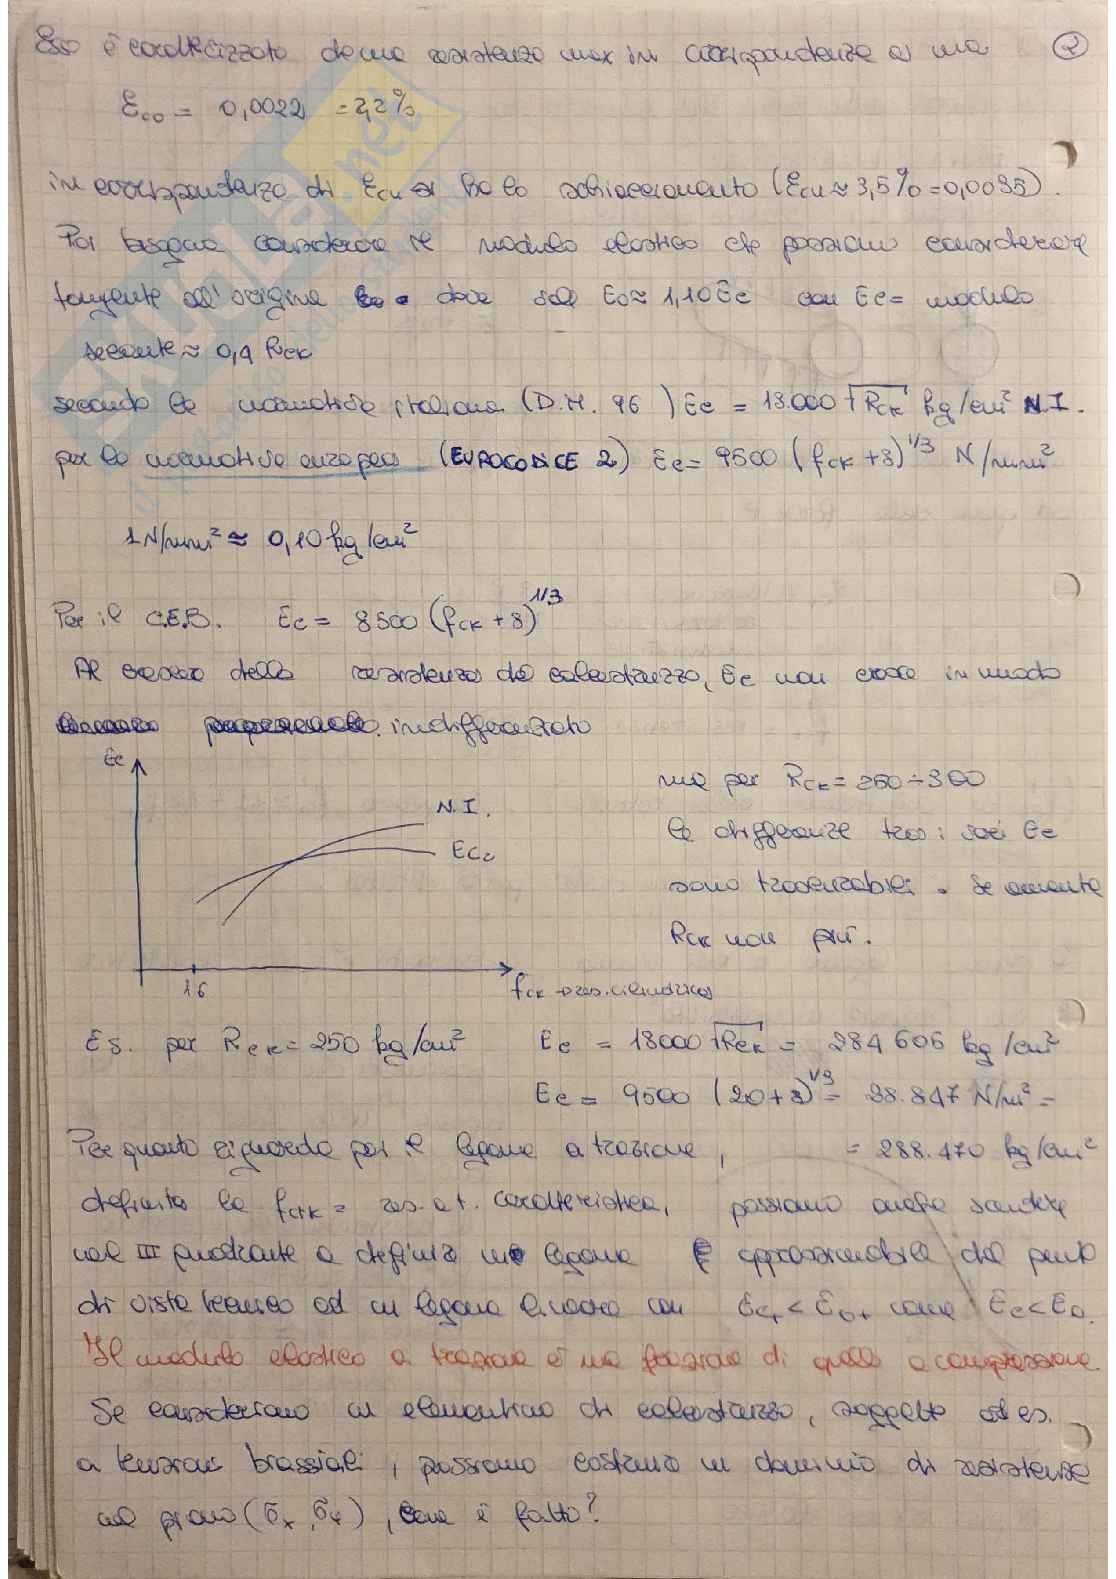 Esso è caratterizzato da una resistenza max in corrispondenza di una 2
εco = 0,0022 = 2,2‰
in corrispondenza di εcu si ha lo schiacciamento (εcu ≈ 3,5‰ = 0,0035).
Poi bisogna considerare il modulo elastico che possiamo considerare
tangente all'origine Eo dove sarà Eo ≈ 1,10 Ec con Ec = modulo
secante ≈ 0,4 Rck
secondo la normativa italiana (D.M. 96) Ec = 18.000 √Rck kg/cm² N.I.
per la normativa europea (EUROCODICE 2) Ec = 9500 (fck + 8)^1/3 N/mm²
1N/mm² ≈ 0,10 kg/cm²
Per il C.E.B. Ec = 8500 (fck + 8)^1/3
Al crescere della resistenza del calcestruzzo, Ec non cresce in modo
indifferenziato
Ec
N.I.
EC2
16
fck → res. cilindrica
ma per Rck = 250 ÷ 300
le differenze tra i vari Ec
sono trascurabili. Se aumenta
Rck non più.
Es. per Rck = 250 kg/cm² Ec = 18000 √Rck = 284 606 kg/cm²
Ec = 9500 (20+8)^1/3 = 28.847 N/m² =
= 288.470 kg/cm²
Per quanto riguarda poi il legame a trazione,
definita la fctk = res. a t. caratteristica, possiamo anche scendere
nel III quadrante e definire un legame approssimabile dal punto
di vista tecnico ad un legame lineare con Ect < Eot come Ec < Eo.
Il modulo elastico a trazione è una frazione di quello a compressione.
Se consideriamo un elementino di calcestruzzo, soggetto ad es.
a tensioni biassiali, possiamo costruire un dominio di resistenza
nel piano (σx, σy), come è fatto?